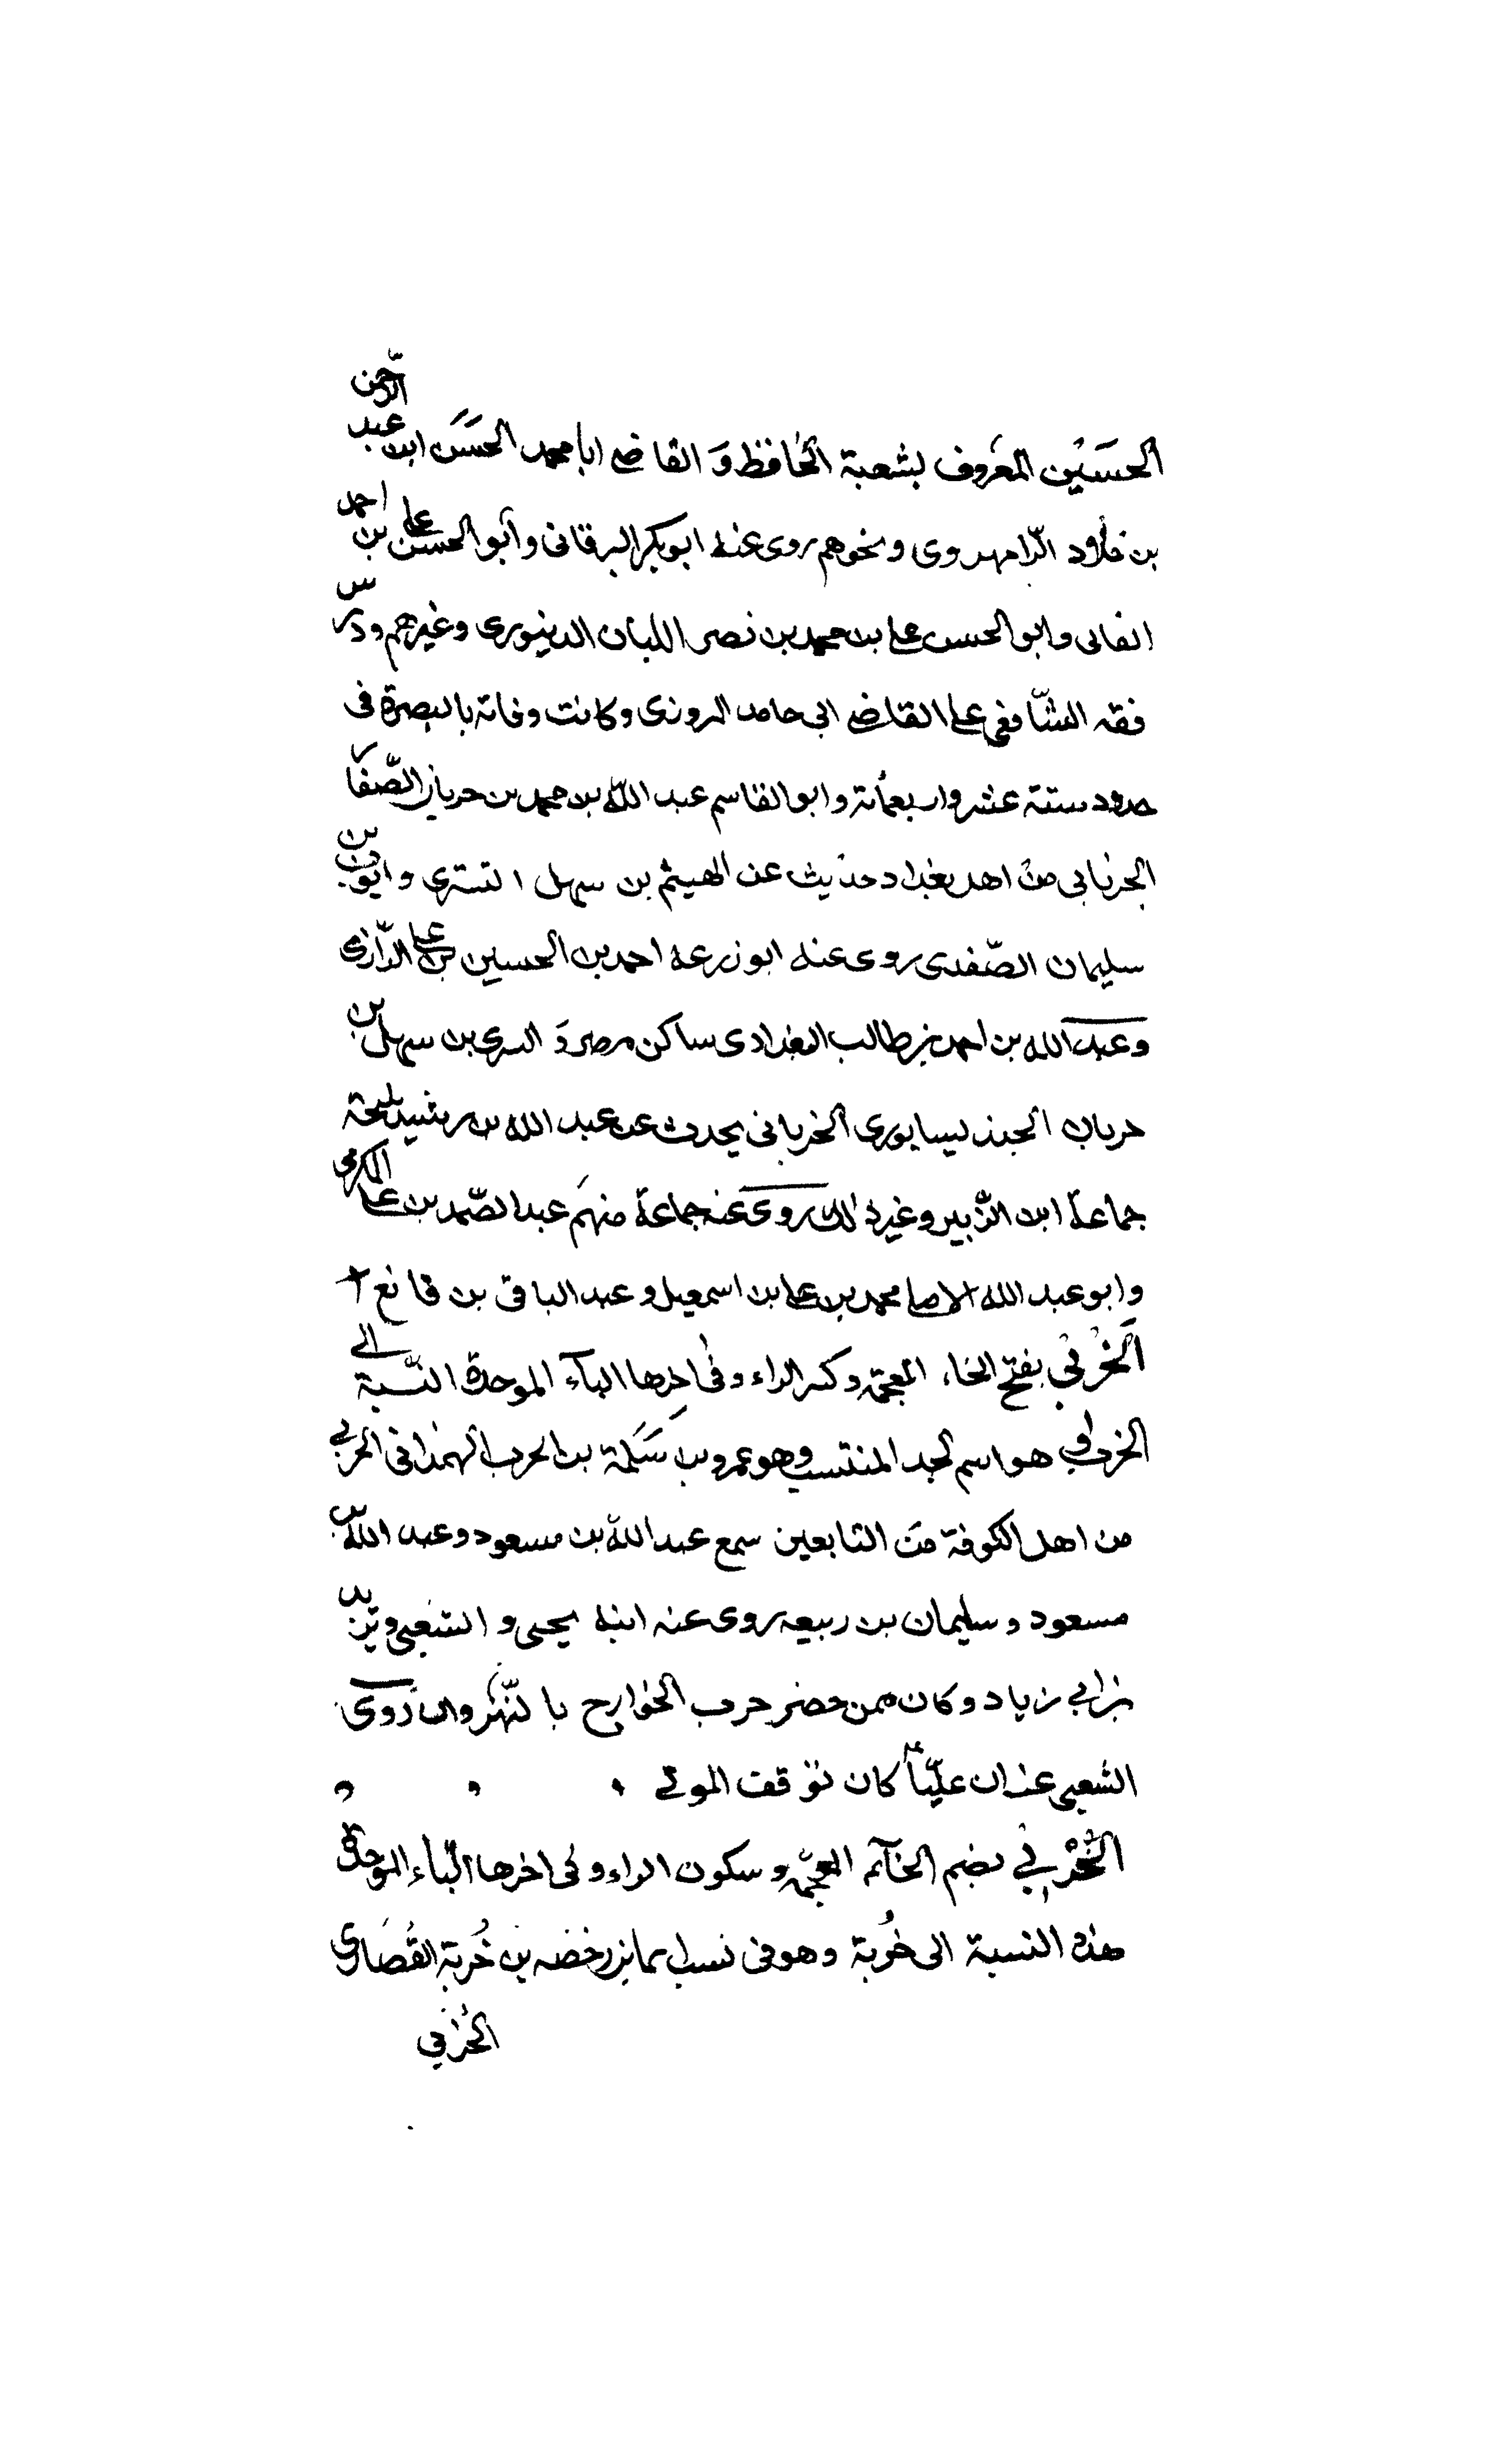 الحسَين المعَروف بشعبة الحٰافظ وَ القاضي ابا محمد الحسَن ابن عبد الرّحمن
بن خلاد الرّامهروى ونحوهم روى عنه ابو بكر البرقانى وأبو الحسن على بن احمد
الفالى وابو الحسن على بن محمد بن نصر اللبان الدينورى وغيرهم ودرّس
فقه الشّافعى على القاضي ابي حامد المروزى وكانت وفاته بالبصرة فى
حدود ستة عشر واربعمائة وابو القاسم عبد اللّه بن محمد بن خربان الصّفار
الخربانى من اهل بغداد حدّيث عن الهيثم بن سهل التسترى وايوب بن
سليمان الصّفدى روى عنه ابو زرعه احمد بن الحسين بن على الرّازى
وعبد الله بن احمد بن طالب البغدادى ساكن مصر وَ السرى بن سهل بن
خربان الجنديسابورى الخربانى يحدث عن عبد الله بن رشيد بليحة
جماعة ابن الزّبير وغير ذلك روى عنه جماعة منهَم عبد الصّمد بن على المكرمى
وابو عبد الله الاصلى محمد بن على بن اسمعيل وعبد الباقى بن قانع
الَخرْبي بفتح الخاء المعجمه وكسر الراء وفى اخرها البآء الموحدة النّسبة الى
الخرب وهو اسم لجد المنتسب وهو عمرو بن سَلمة بن الخرب الهمدانى الخربي
من اهل الكوفة منَ التابعين سمع عبد اللّه بن مسعود وعبد اللّه بن
مسعود وسليمان بن ربيعه روى عنه ابنه يحيى والشعبى ويزيد
بن ابي زياد وكان ممن حضر حرب الخوارج بالنّهروان روَى
الشعبى عنه ان عليّاً كان توقف الموتى
الخُرْبي بضم الخآء المعجمه وسكون الراء وفى اخرها البّاء الموحدة
هذه النسبة الى خُربة وهو فى نسب ايما بن رخضه بن خُربة الغفارى
الخُربي